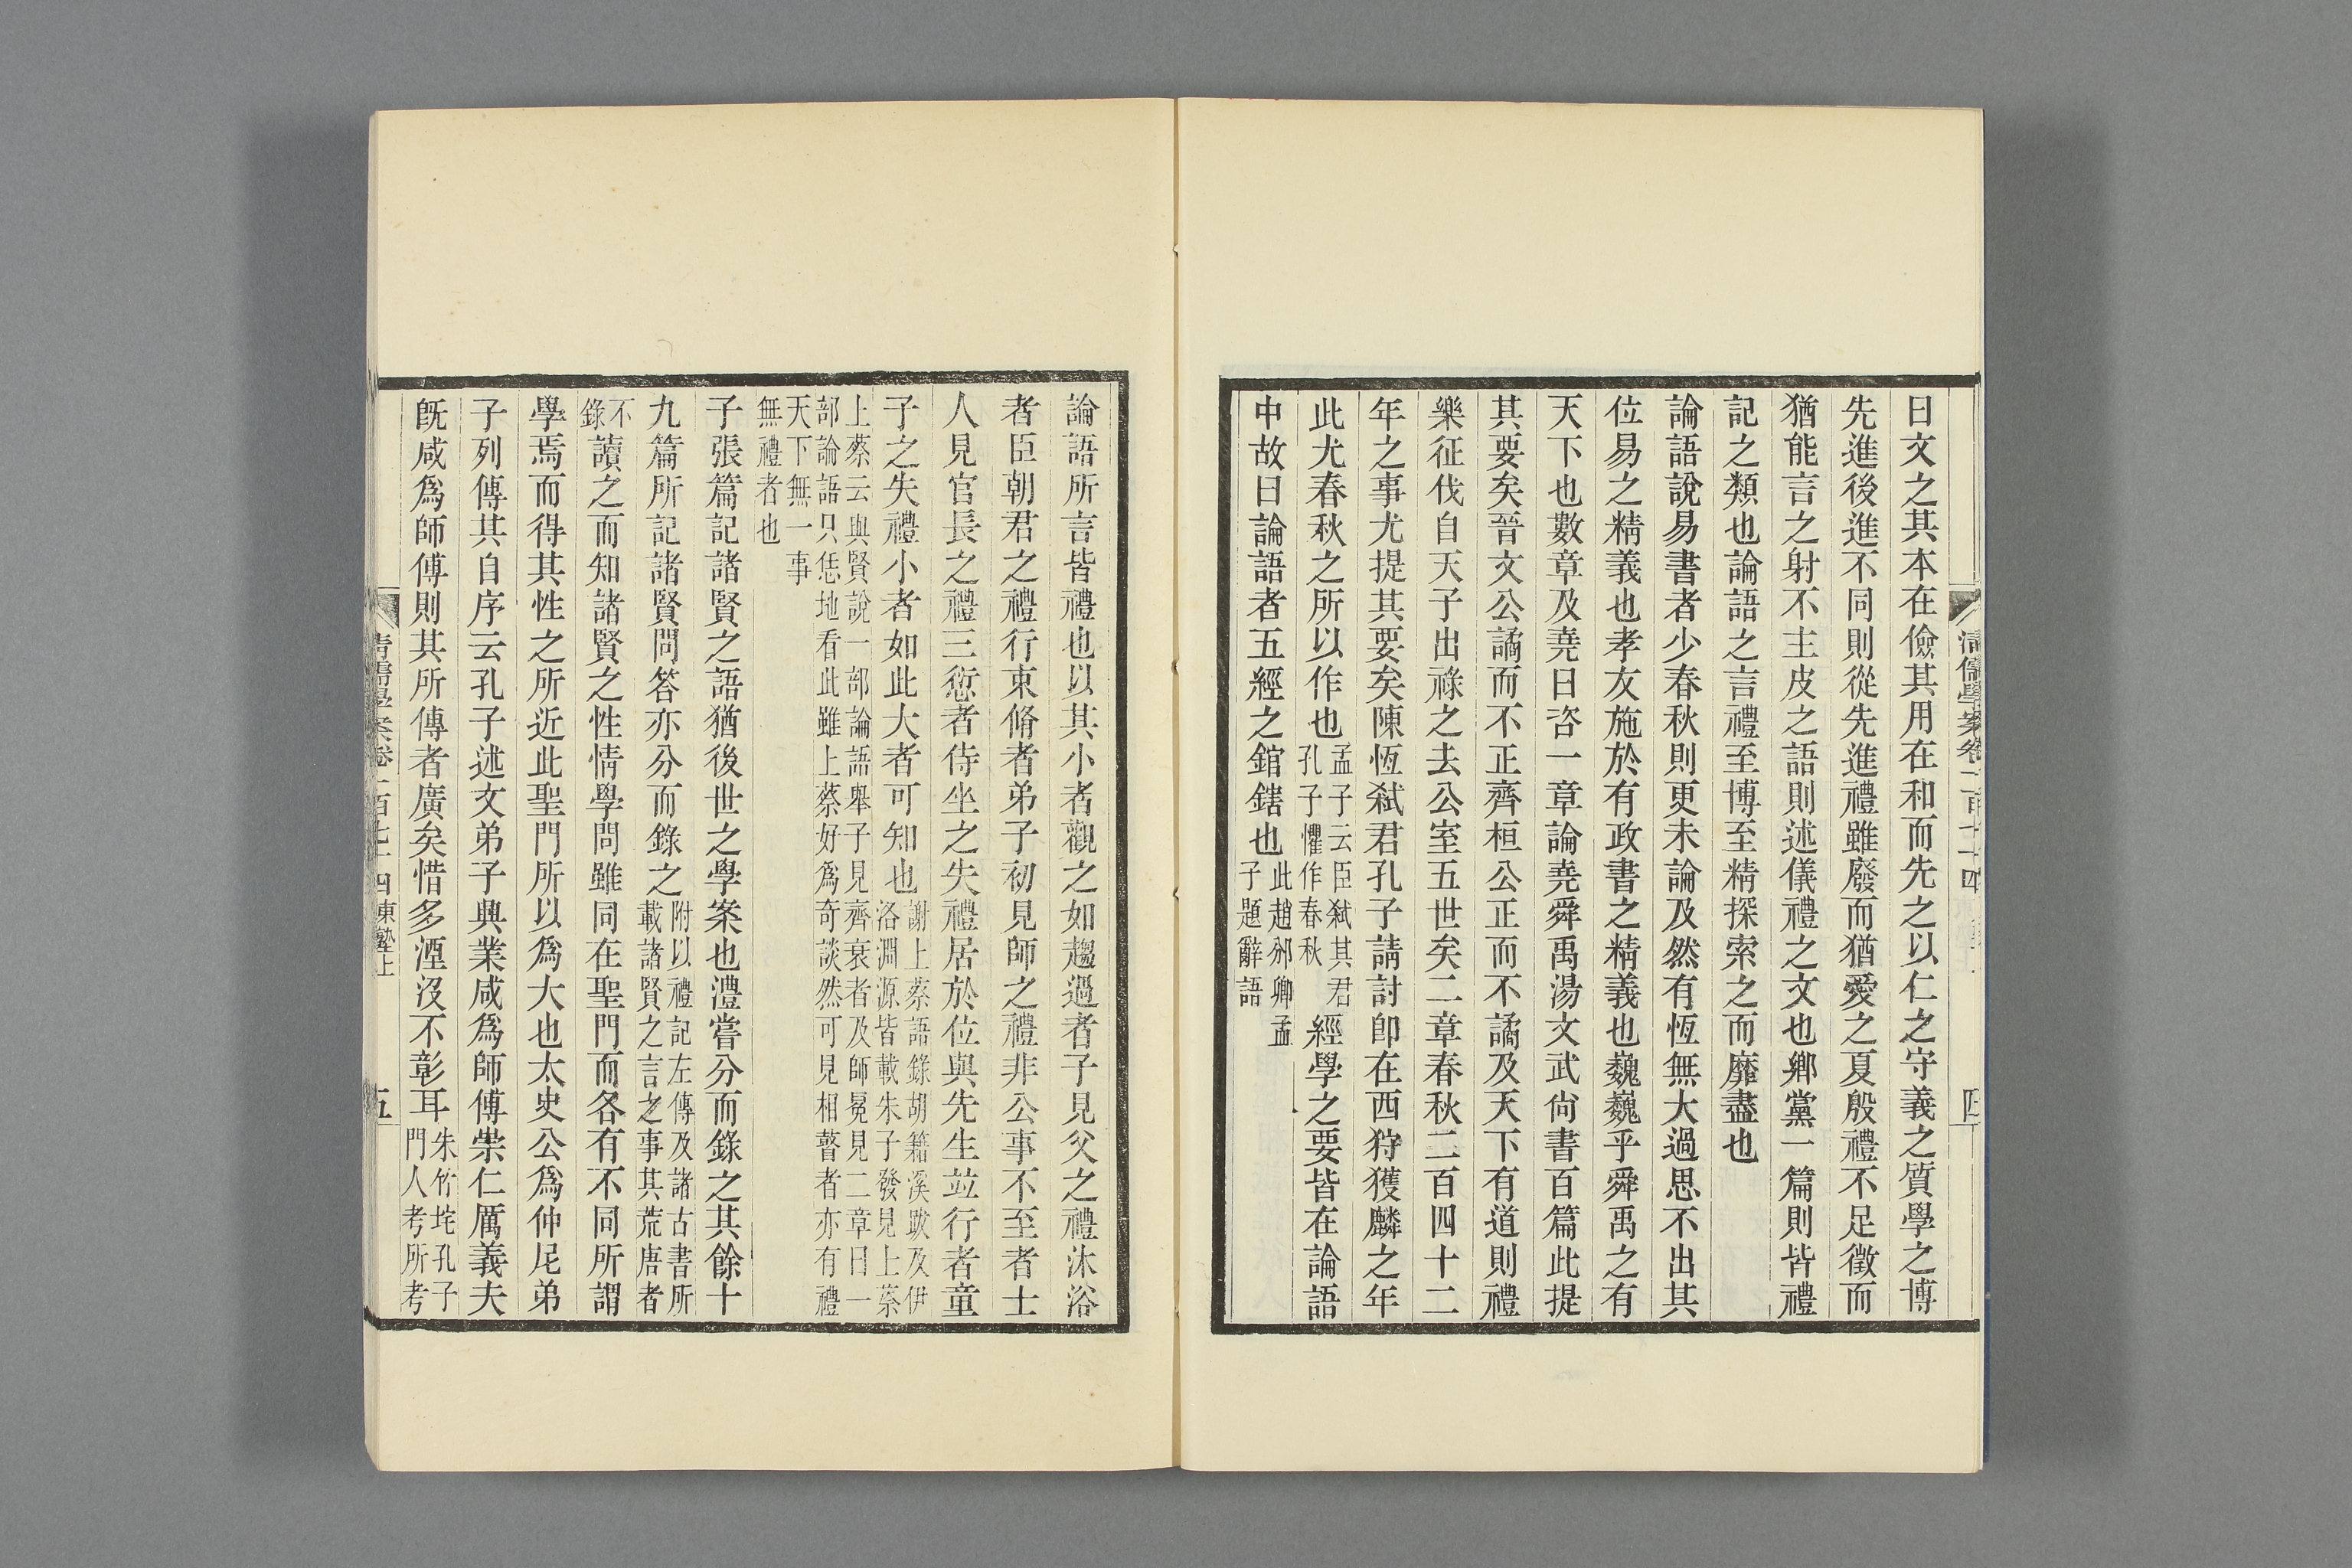 曰文之其本在儉其用在和而先之以仁之守義之質學之博
先進後進不同則從先進禮雖廢而猶愛之夏殷禮不足徵而
猶能言之射不主皮之語則述儀禮之文也鄉黨一篇則皆禮
記之類也論語之言禮至博至精探索之而靡盡也
論語說易書者少春秋則更未論及然有恆無大過思不出其
位易之精義也孝友施於有政書之精義也巍巍乎舜禹之有
天下也數章及堯曰咨一章論堯舜禹湯文武尙書百篇此提
其要矣晉文公譎而不正齊桓公正而不譎及天下有道則禮
樂征伐自天子出祿之去公室五世矣二章春秋二百四十二
年之事尤提其要矣陳恆弒君孔子請討卽在西狩獲麟之年
此尤春秋之所以作也孟子云臣弒其君孔子懼作春秋經學之要皆在論語
中故曰論語者五經之錧鎋也此趙邠卿孟子題辭語
清儒學案卷一百七十四
四
論語所言皆禮也以其小者觀之如趨過者子見父之禮沐浴
者臣朝君之禮行束脩者弟子初見師之禮非公事不至者士
人見官長之禮三愆者侍坐之失禮居於位與先生竝行者童
子之失禮小者如此大者可知也謝上蔡語錄胡籍溪跋及伊洛淵源皆載朱子發見上蔡
上蔡云與賢說一部論語舉子見齊衰者及師冕見二章曰一部論語只恁地看此雖上蔡好爲奇談然可見相瞽者亦有禮
天下無一事無禮者也
子張篇記諸賢之語猶後世之學案也澧嘗分而錄之其餘十
九篇所記諸賢問答亦分而錄之附以禮記左傳及諸古書所載諸賢之言之事其荒唐者
不錄讀之而知諸賢之性情學問雖同在聖門而各有不同所謂
學焉而得其性之所近此聖門所以爲大也太史公爲仲尼弟
子列傳其自序云孔子述文弟子興業咸爲師傅崇仁厲義夫
旣咸爲師傅則其所傳者廣矣惜多湮沒不彰耳朱竹垞孔子門人考所考
清儒學案卷一百七十四東塾上
五